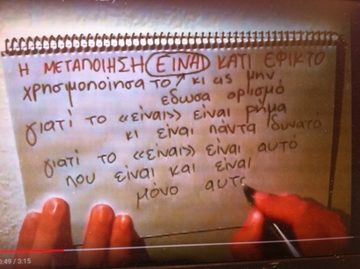 Η ΜΕΤΑΠΟΙΗΣΗ ΕΙΝΑΙ ΚΑΤΙ ΕΦΙΚΤΟ
χρησιμοποίησα το κι ας μην
έδωσα ορισμό
γιατί το «είναι» είναι ρήμα
κι είναι πάντα δυνατό
γιατί το «είναι» είναι αυτό
που είναι και είναι
μόνο αυτ
0:49 / 3:15